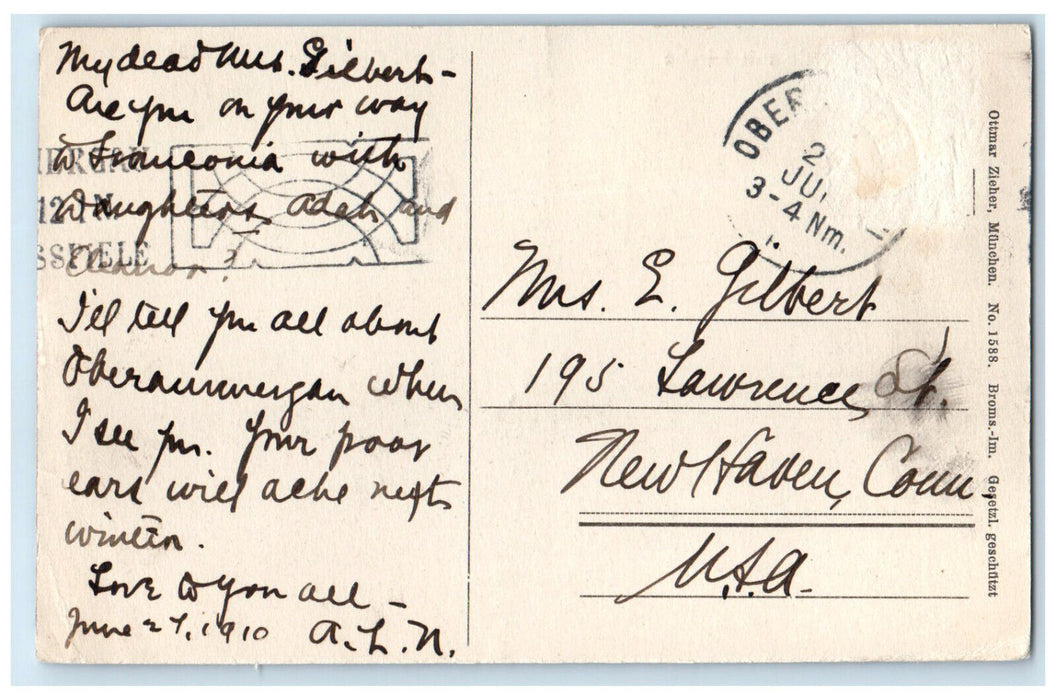 My dear Mrs. Gilbert -
Are you on your way
to Franconia with
Daughters Adah and
Eleanor?
I'll tell you all about
Oberammergau when
I see you. Your poor
ears will ache next
winter.
Love to you all -
June 27, 1910 A. L. N.
ERGAU
12
SSPIELE
OBER
2
JU
3-4 Nm.
Mrs. E. Gilbert
195 Lawrence St.
New Haven, Conn,
U.S.A.
Ottmar Zieher, München. No. 1588. Broms.-Im. Gesetzl. geschützt